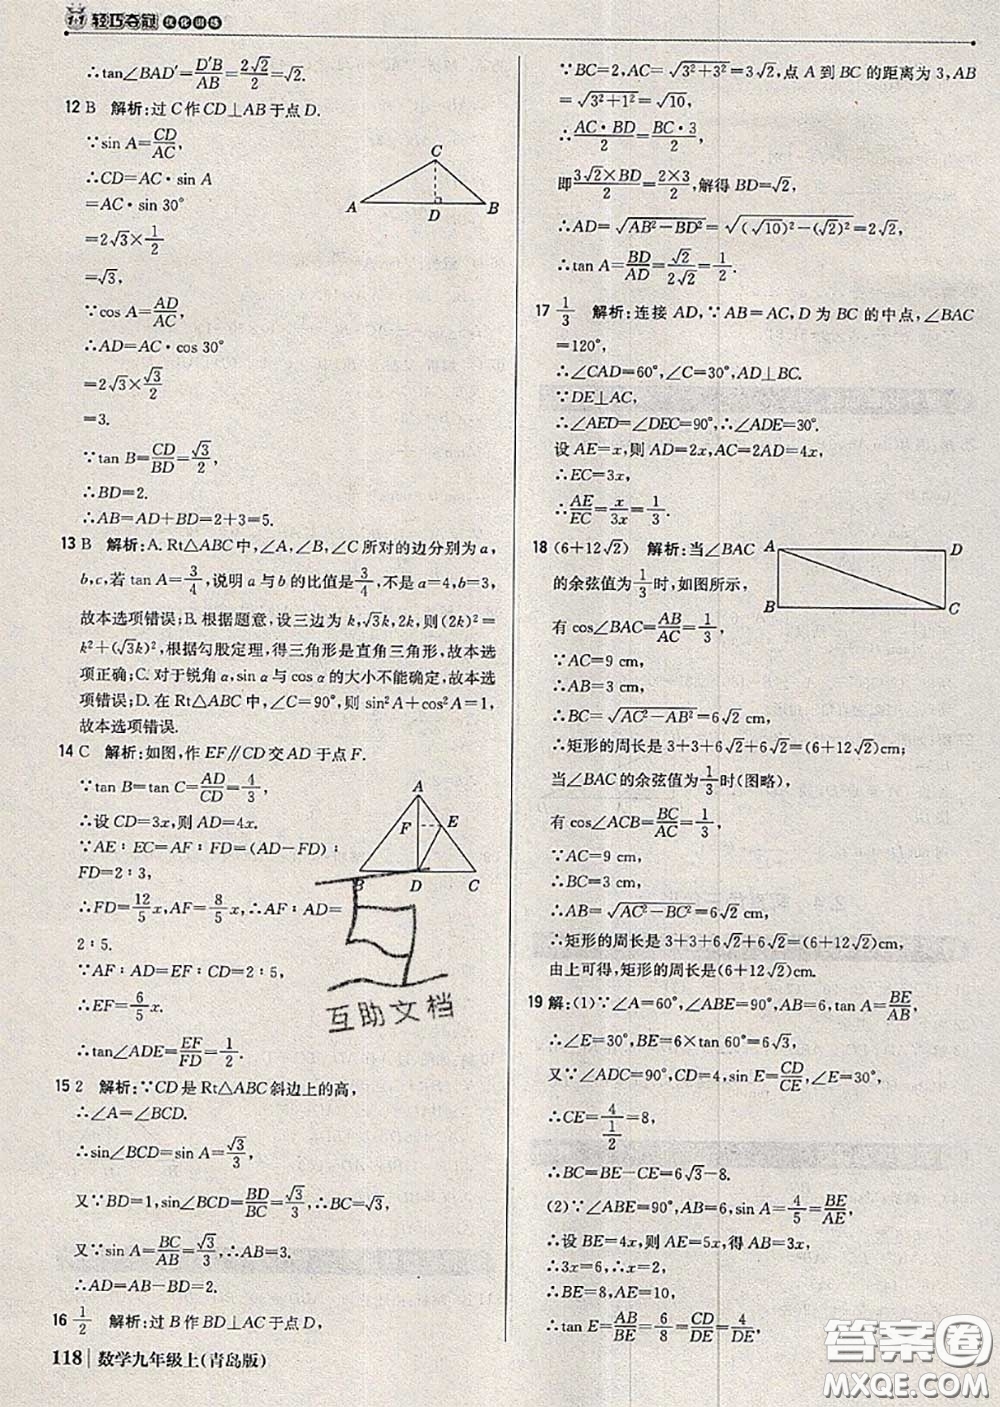 1+1 轻巧夺冠 优化训练
∴tan∠BAD′=D′B/AB=2√2/2=√2.
12 B 解析:过C作CD⊥AB于点D.
∵sin A=CD/AC,
∴CD=AC·sin A
=AC·sin 30°
=2√3×1/2
=√3,
∵cos A=AD/AC,
∴AD=AC·cos 30°
=2√3×√3/2
=3.
∵tan B=CD/BD=√3/2,
∴BD=2.
∴AB=AD+BD=2+3=5.
C
A D B
13 B 解析:A. Rt△ABC中,∠A、∠B、∠C所对的边分别为a,
b,c,若tan A=3/4,说明a与b的比值是3/4,不是a=4,b=3,
故本选项错误;B. 根据题意,设三边为k,√3k,2k,则(2k)²=
k²+(√3k)²,根据勾股定理,得三角形是直角三角形,故本选
项正确;C. 对于锐角α,sin α与cos α的大小不能确定,故本选
项错误;D. 在Rt△ABC中,∠C=90°,则sin²A+cos²A=1,
故本选项错误.
14 C 解析:如图,作EF∥CD交AD于点F.
∵tan B=tan C=AD/CD=4/3,
∴设CD=3x,则AD=4x.
∵AE:EC=AF:FD,AD-AF=FD,AF:
FD=2:3,
∴FD=12/5x,AF=8/5x,∴AF:AD=
2:5.
∵AF:AD=EF:CD=2:5,
∴EF=6/5x.
∴tan∠ADE=EF/FD=1/2.
A
F E
B D C
互助文档
15 2 解析:∵CD是Rt△ABC斜边上的高,
∴∠A=∠BCD.
∴sin∠BCD=sin A=√3/3,
又∵BD=1,sin∠BCD=BD/BC=√3/3,∴BC=√3.
又∵sin A=BC/AB=√3/3,∴AB=3.
∴AD=AB-BD=2.
16 1/2 解析:过B作BD⊥AC于点D,
118 数学九年级上(青岛版)
∵BC=2,AC=√(3²+3²)=3√2,点A到BC的距离为3,AB
=√(3²+1²)=√10,
∴AC·BD/2=BC·3/2,
即3√2×BD/2=2×3/2,解得BD=√2,
∴AD=√(AB²-BD²)=√((√10)²-(√2)²)=2√2,
∴tan A=BD/AD=√2/2√2=1/2.
17 1/3 解析:连接AD,∵AB=AC,D为BC的中点,∠BAC
=120°,
∴∠CAD=60°,∠C=30°,AD⊥BC.
∵DE⊥AC,
∴∠AED=∠DEC=90°,∴∠ADE=30°.
设AE=x,则AD=2x,AC=2AD=4x,
∴EC=3x,
∴AE/EC=x/3x=1/3.
18 (6+12√2) 解析:当∠BAC
的余弦值为1/3时,如图所示,
有cos∠BAC=AB/AC=1/3,
∵AC=9 cm,
∴AB=3 cm,
∴BC=√(AC²-AB²)=6√2 cm,
∴矩形的周长是3+3+6√2+6√2=(6+12√2)cm;
当∠BAC的余弦值为1/3时(图略),
有cos∠ACB=BC/AC=1/3,
∵AC=9 cm,
∴BC=3 cm,
∴AB=√(AC²-BC²)=6√2 cm,
∴矩形的周长是3+3+6√2+6√2=(6+12√2)cm,
由上可得,矩形的周长是(6+12√2)cm.
A D
B C
19 解:(1)∵∠A=60°,∠ABE=90°,AB=6,tan A=BE/AB,
∴∠E=30°,BE=6×tan 60°=6√3,
又∵∠CDE=90°,CD=4,sin E=CD/CE,∠E=30°,
∴CE=4/(1/2)=8,
∴BC=BE-CE=6√3-8.
(2)∵∠ABE=90°,AB=6,sin A=4/5=BE/AE,
∴设BE=4x,则AE=5x,得AB=3x,
∴3x=6,∴x=2.
∴BE=8,AE=10,
∴tan E=AB/BE=6/8=CD/DE=4/DE,
答案圈
MXQE.COM